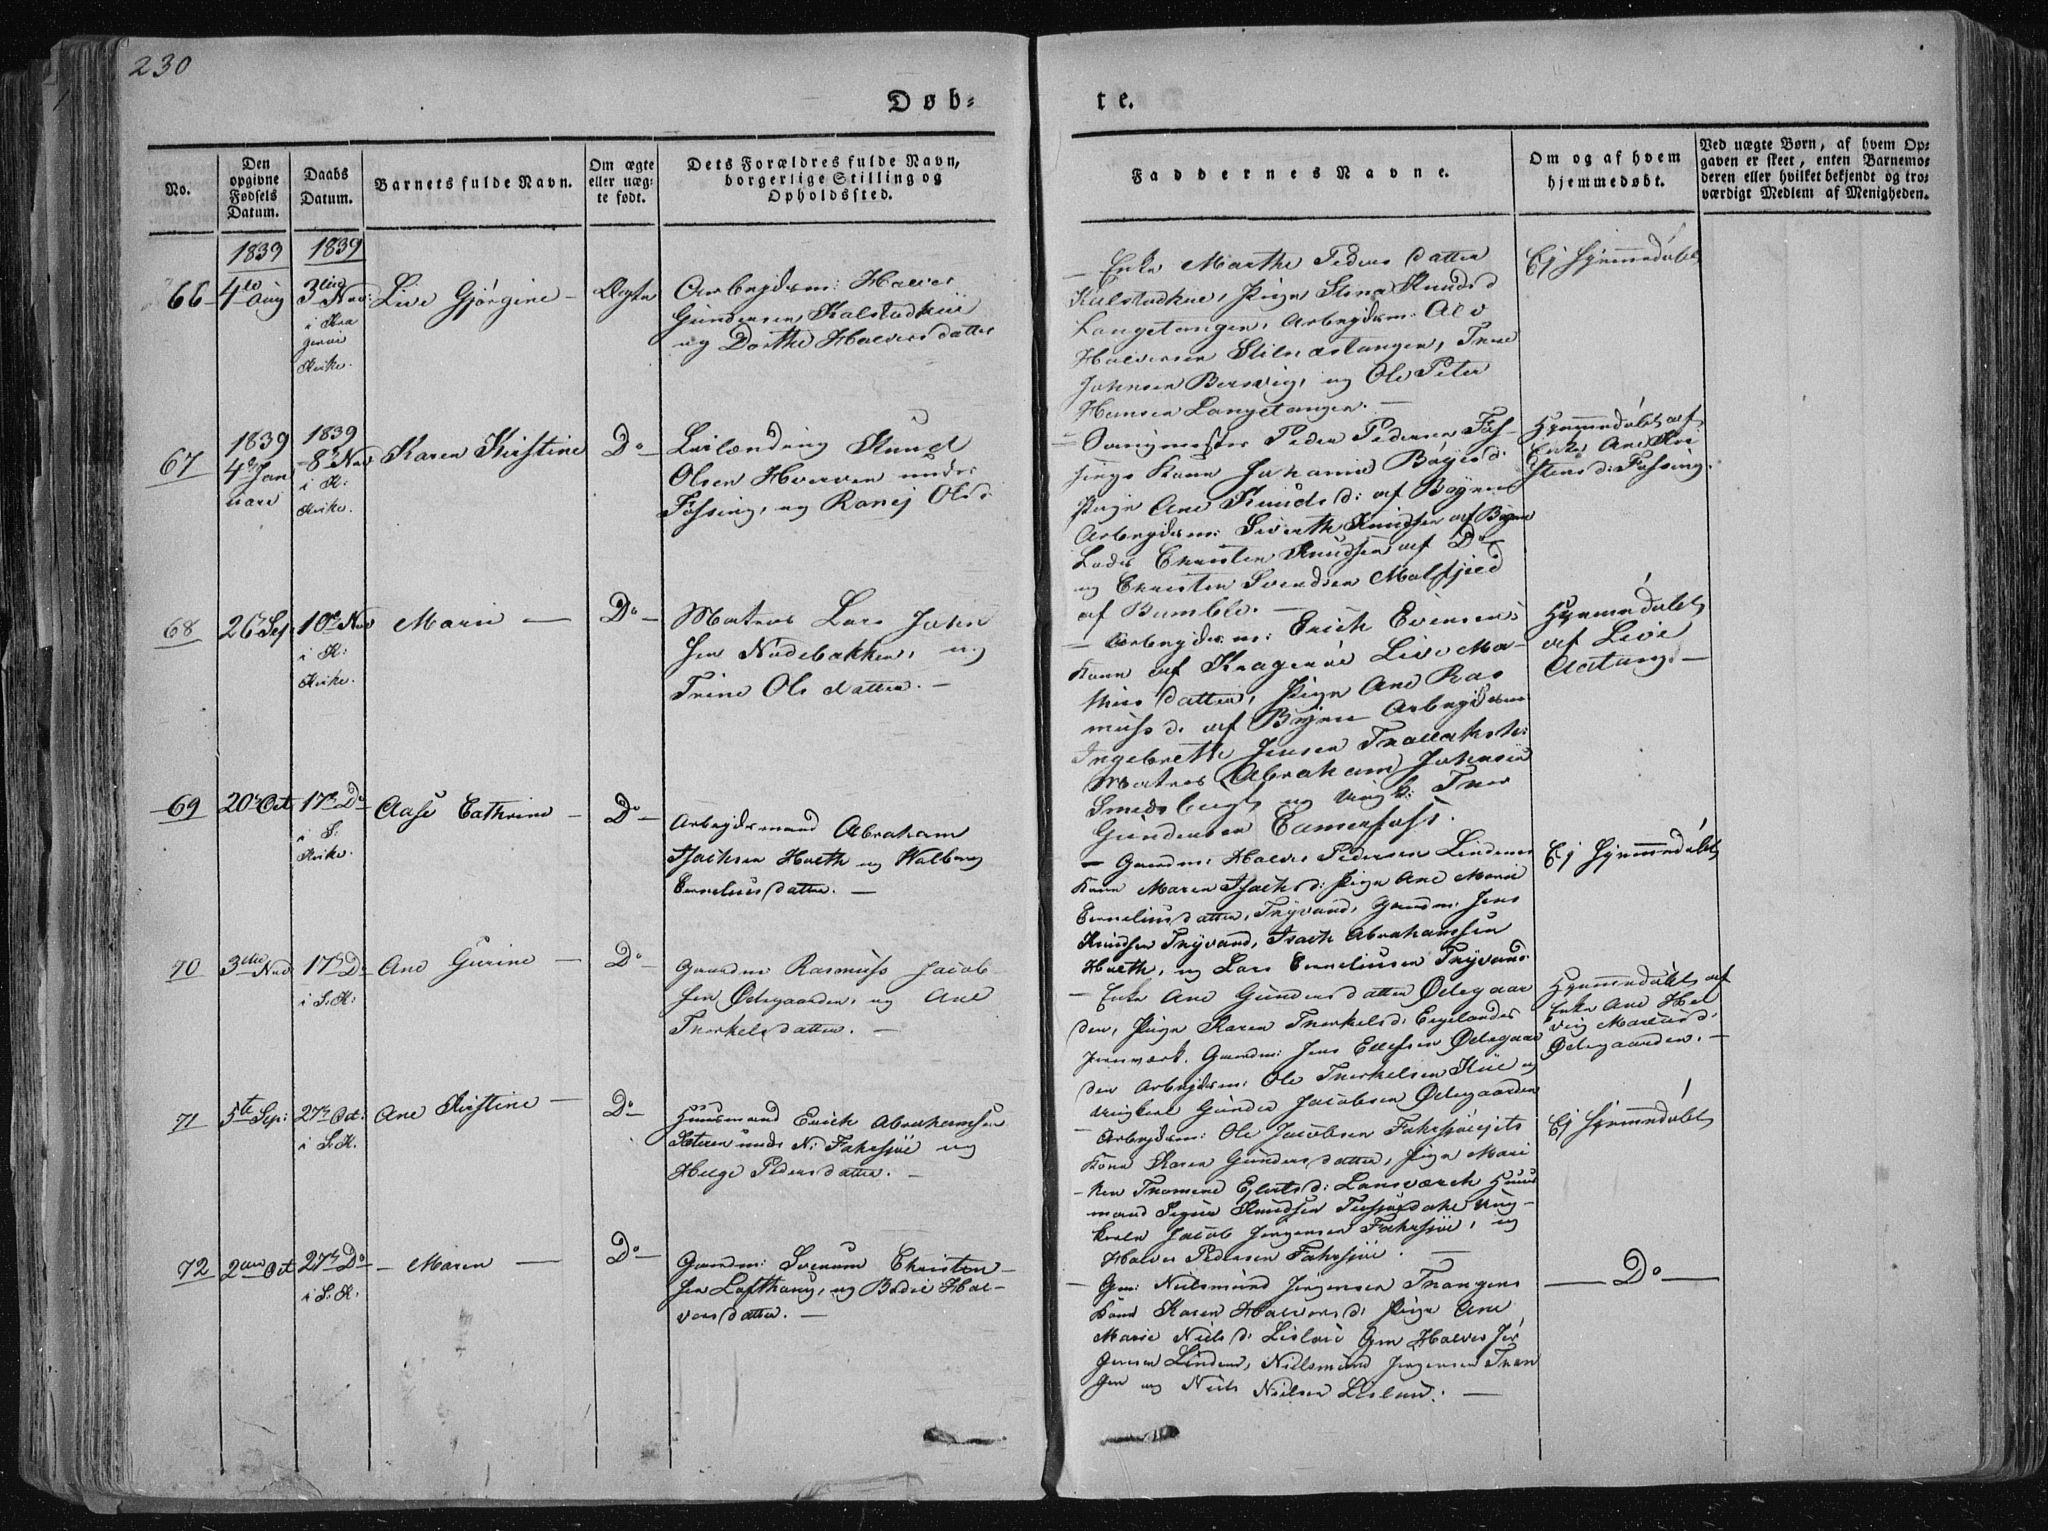 230
Døb-
te.
No.
Den opgivne Fødsels Datum.
Daabs Datum.
Barnets fulde Navn.
Om ægte eller uægte født.
Dets Forældres fulde Navn, borgerlige Stilling og Opholdssted.
Faddernes Navne.
Om og af hvem hjemmedøbt.
Ved uægte Børn, af hvem Opgaven er skeet, enten Barnemoderen eller hvilket bekjendt og troværdigt Medlem af Menigheden.
1839
1839
66
4de Aug
3die Nov:
i Kra
gerøe
Kirke.
Live Gjørgine
Ægte
Arbejdsm: Halvor
Gundersen Kalstadkiil
og Dorthe Halvorsdatter
Enke Marthe Pedersdatter
Kalstadkiil, Pige Stina Knudsd
Langetangen, Arbejdsm: Ole
Halvorsen Stilnæstangen,
Johnsen Bersvig, og Ole Peter
Hansen Langetangen.
Ej Hjemmedøbt
67
1839
4de Jan
uari
1839
8de Nov
i K:
Kirke.
Karen Kirstine
Do
Knud
Olsen Hverven under
Fossing, og Ronej Olsd:
Peder Pedersen Fos
sings Kone Johanne Bøjesd:
Pige Ane Knudsd: af Bøjen
Arbejdsm: Siverth Knudsen af Bøjen
Lods Christen Knudsen af Do
og Christen Svendsen Malfjeld
af Bamble.
Hjemmedøbt af
Enke Ane Kri
stensd: Fossing.
68
26de Sep
10de Nov
i K:
Kirke.
Marie
Do
Matros Lars John
sen Nødebakken, og
Trine Olsdatter.
Arbejdsm: Erich Evensens
Kone af Kragerøe Live Ma-
thisdatter, Pige Ane Ras
mussd. af Bøjen Arbejdsm
Ingebreth Jensen
Matros Abraham Johnsen
Smedsbugt og Ungk: Thor
Gundersen
Hjemmedøbt
af Live
Aatang.
69
20de Oct
17de Do
i S:
Kirke.
Aase Cathrine
Do
Arbejdsmand Abraham
Isachsen Holth og Valborg
Corneliusdatter.
Gaardm: Halvor Pedersen Lindens
Kone Maren Isachsd: Pige Ane Marie
Corneliusdatter, Tryvand, Gaardm: Jens
Knudsen Tryvand, Isach Abrahamsen
Holth, og Lars Corneliusen Tryvand.
Ej Hjemmedøbt
70
3die Nov
17de Do
i S: K:
Ane Gurine
Do
Gaardm: Rasmus Jacob
sen Ødegaarden, og Ane
Thorkelsdatter.
Enke Ane Gundersdatter Ødegaar
den, Pige Karen Thorkelsd: Egelands
Jernværk. Gaardm: Jens Ellefsen Ødegaar
den Arbejdsm: Ole Thorkelsen Kiil og
Ungkarl Gunder Jacobsen Ødegaarden
Hjemmedøbt af
Enke Ane Hel
vig Mariusd:
Ødegaarden.
71
5te Sep:
27de Oct:
i S. K.
Ane Kirstine
Do
Huusmand Erich Abrahamsen
under N: Fahrsjøe og
Helge Pedersdatter.
Arbejdsm: Ole Jacobsen Fahrsjøeejets
Kone Karen Gundersdatter, Pige Mari
ken Thomine Eilertsd: Landsværch Huus
mand Signe Knudsen Ung-
karl Jacob Jørgensen Fahrsjøe, og
Halvor Pedersen Fahrsjøe.
Ej Hjemmedøbt
72
2den Oct
27de Do
i S: K:
Maren
Do
Gaardm: Svenum Christen
sen Lofthaug, og Bodil Hal-
vorsdatter.
Gm: Nielsmund Jørgensen Thrangens
Kone Karen Halvorsd: Pige Ane
Marie Nielsd: Lisløie Gm Halvor Jør
gensen Linden, Nielsmund Jørgensen Thran
gen og Niels Nielsen Lisløie.
Do